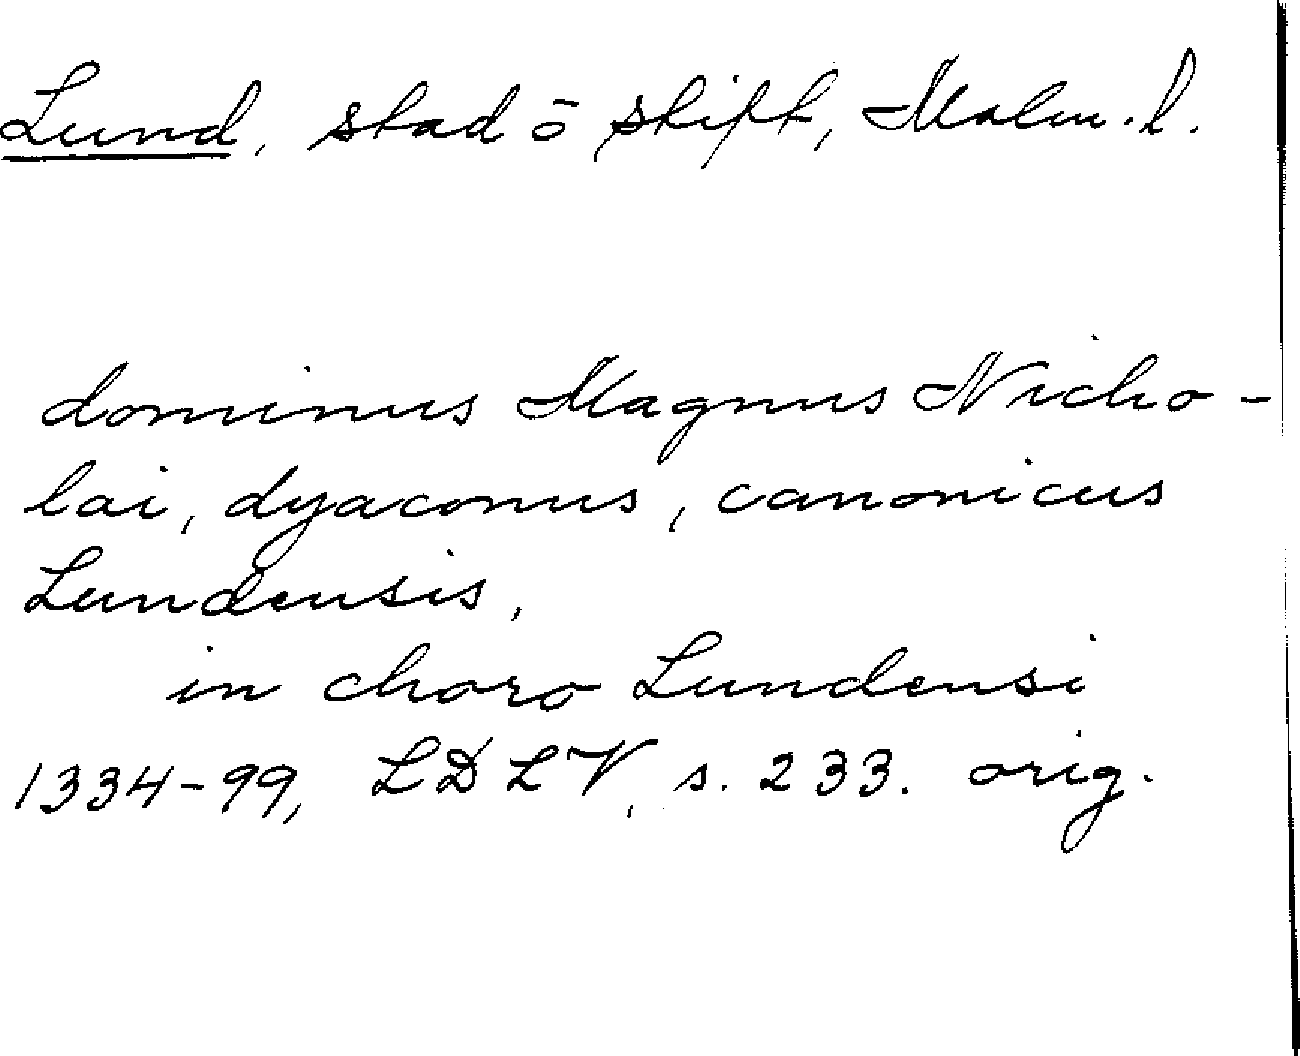 Lund, stad o skift, Malm. l.
dominus Magnus Nicho-
lai, dyaconus, canonicus
Lundensis,
in choro Lundensi
1334-99, LDLV, s. 233. orig.